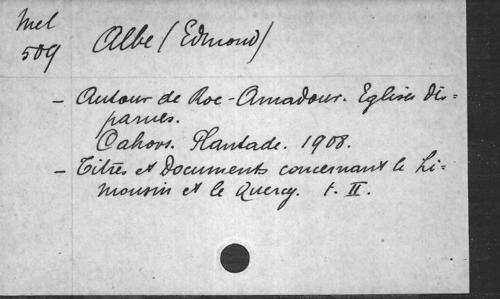 Mel
509
Albe (Edmond)
- Autour de Roc-Amadour. Eglises dis=
parues.
Cahors. Plantade. 1908.
- Titres et Documents concernant le Li-
mousin et le Quercy. t. II.